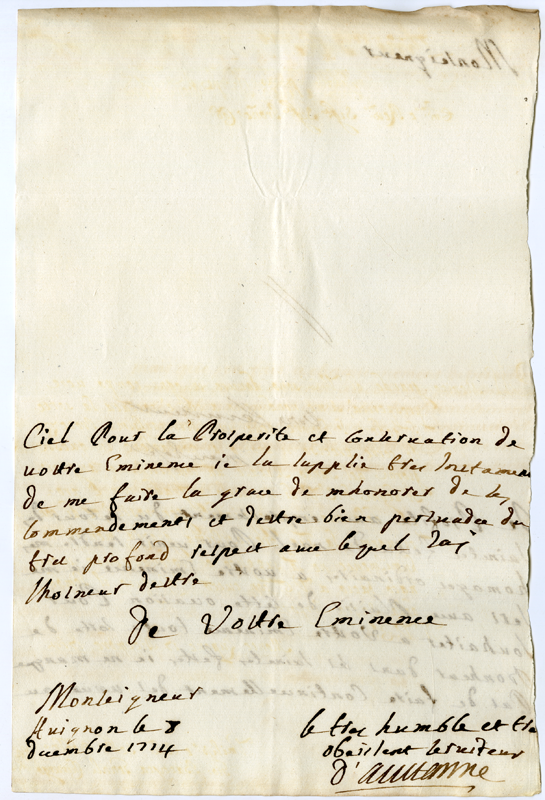 Ciel Pour la Prosperite et Conseruation de
uostre Eminence ie la supplie tres Instament
de me faire la grace de mhonorer de ses
Commendements et destre bien persuadee du
tres profond respect auec lequel Jay
lhoineur destre
De Vostre Eminence
Monseigneur
Auignon le 8
decembre 1714
le tres humble et tres
obeissent seruiteur